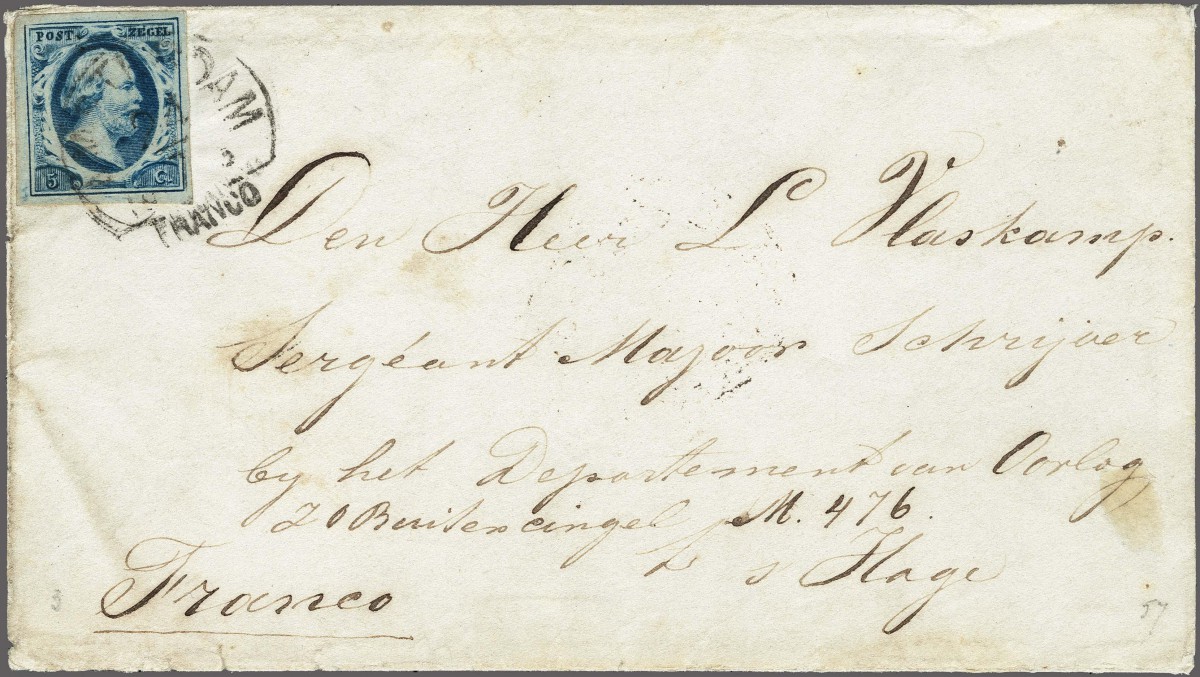 POST ZEGEL
5 C.
DAM
FRANCO
Den Heer L Vlaskamp.
Sergéant Majoor Schrijver
by het Departement van Oorlog
ZO Buitencingel M. 476.
s Hage
Franco
57